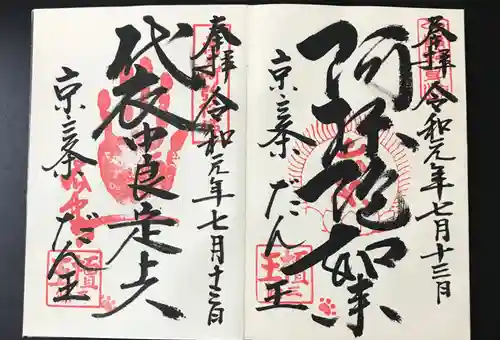 奉拝 令和元年七月十三日
阿弥陀如来
京三条 だん王
奉拝 令和元年七月十三日
袋中良定上人
京三条 だん王